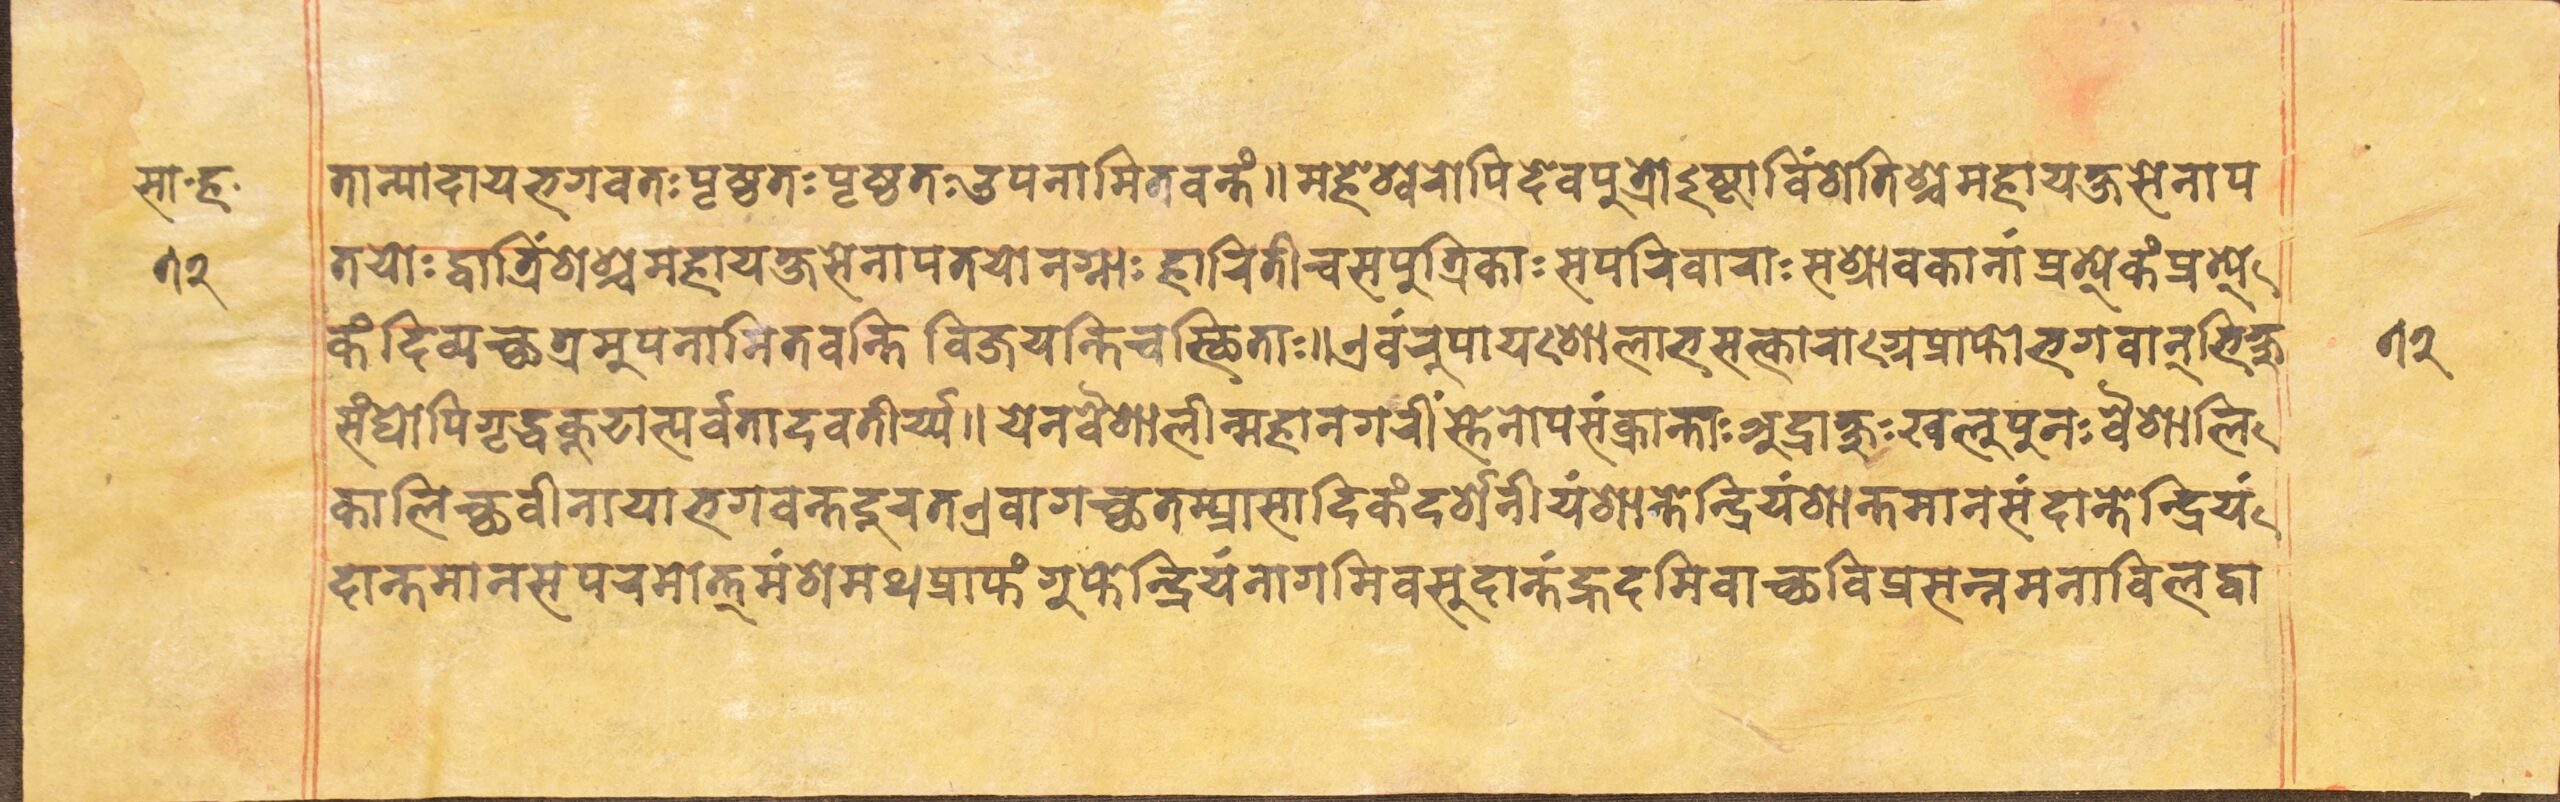 सा॰ह॰
१२
तान्यादाय भगवतः पृष्ठतः पृष्ठतः उपनामितवन्तं॥ महेश्वरोपि देवपुत्रोऽष्टाविंशतिश्च महायक्षसेनाप
तयोः द्वात्रिंशश्च महायक्षसेनापतयो नग्नाः हारितीच सपुत्रिकाः सपरिवाराः सश्रावकानां प्रत्येकं प्रत्ये
कं दिव्यच्छत्रमुपनामितवन्ति विजयन्ति च स्थिताः॥ एवंरुपाय शोलाभसत्काराग्रेप्राप्तो भगवान् भिक्षु
१२
संघोपि गृद्धकूटात्पर्वतादवतीर्य्य॥ येन वैशालीन्महानगरीं स्तेनोपसंक्रान्ताः अद्राक्षुः खलु पुनः वैशालि
कालिच्छवीनाया भगवन्त दुरत एवागच्छतम्प्रासादिकं दर्शनीयं शान्तेन्द्रियं शान्तमानसं दान्तेन्द्रियं
दान्तमानस परमोत्तमं शमथप्राप्तं गुप्तेन्द्रियं नागमिव सुदान्तं ह्रदमिवाच्छ विप्रसन्नमनाविल द्वा